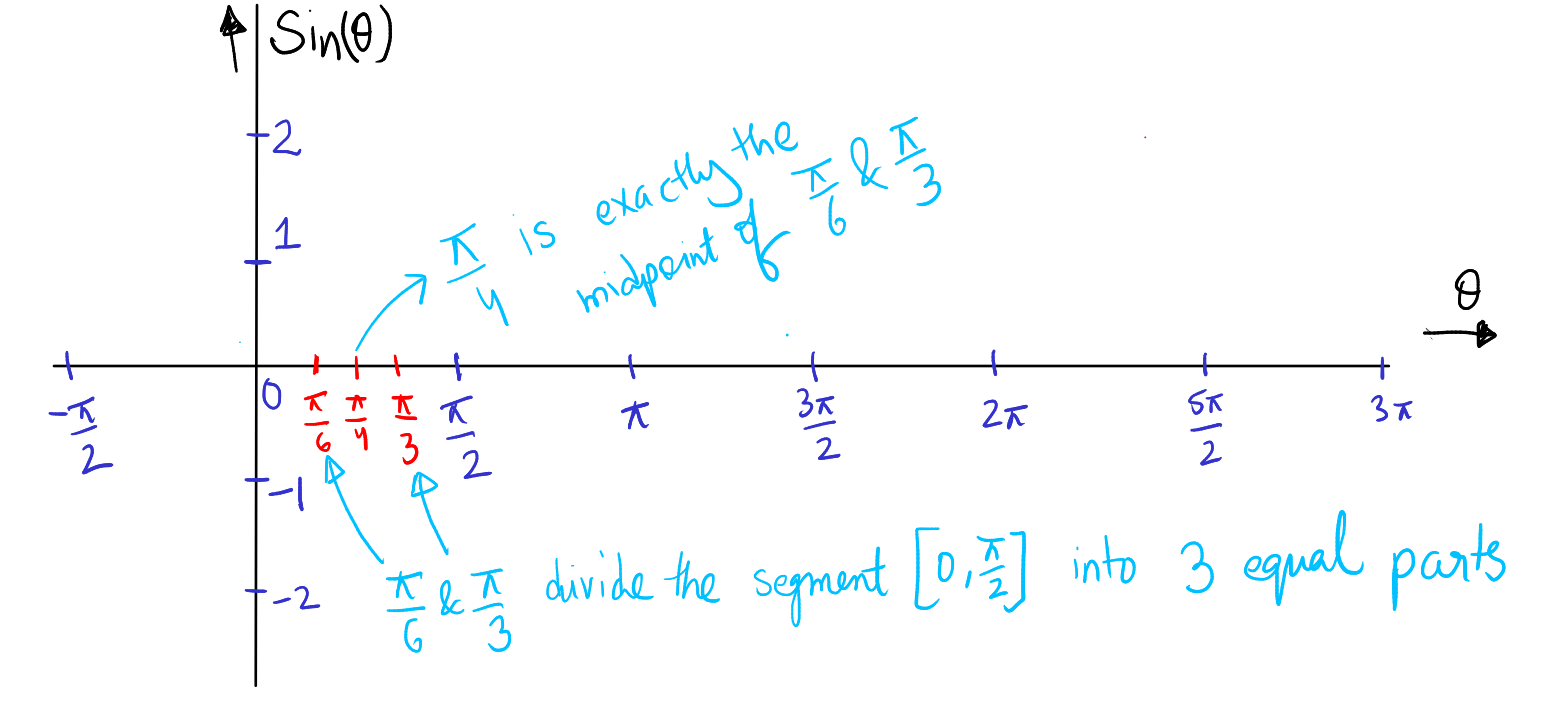 Sin(θ)
2
1
π/4 is exactly the midpoint of π/6 & π/3
θ
-π/2 0 π/6 π/4 π/3 π/2 π 3π/2 2π 5π/2 3π
-1
-2
π/6 & π/3 divide the segment [0, π/2] into 3 equal parts